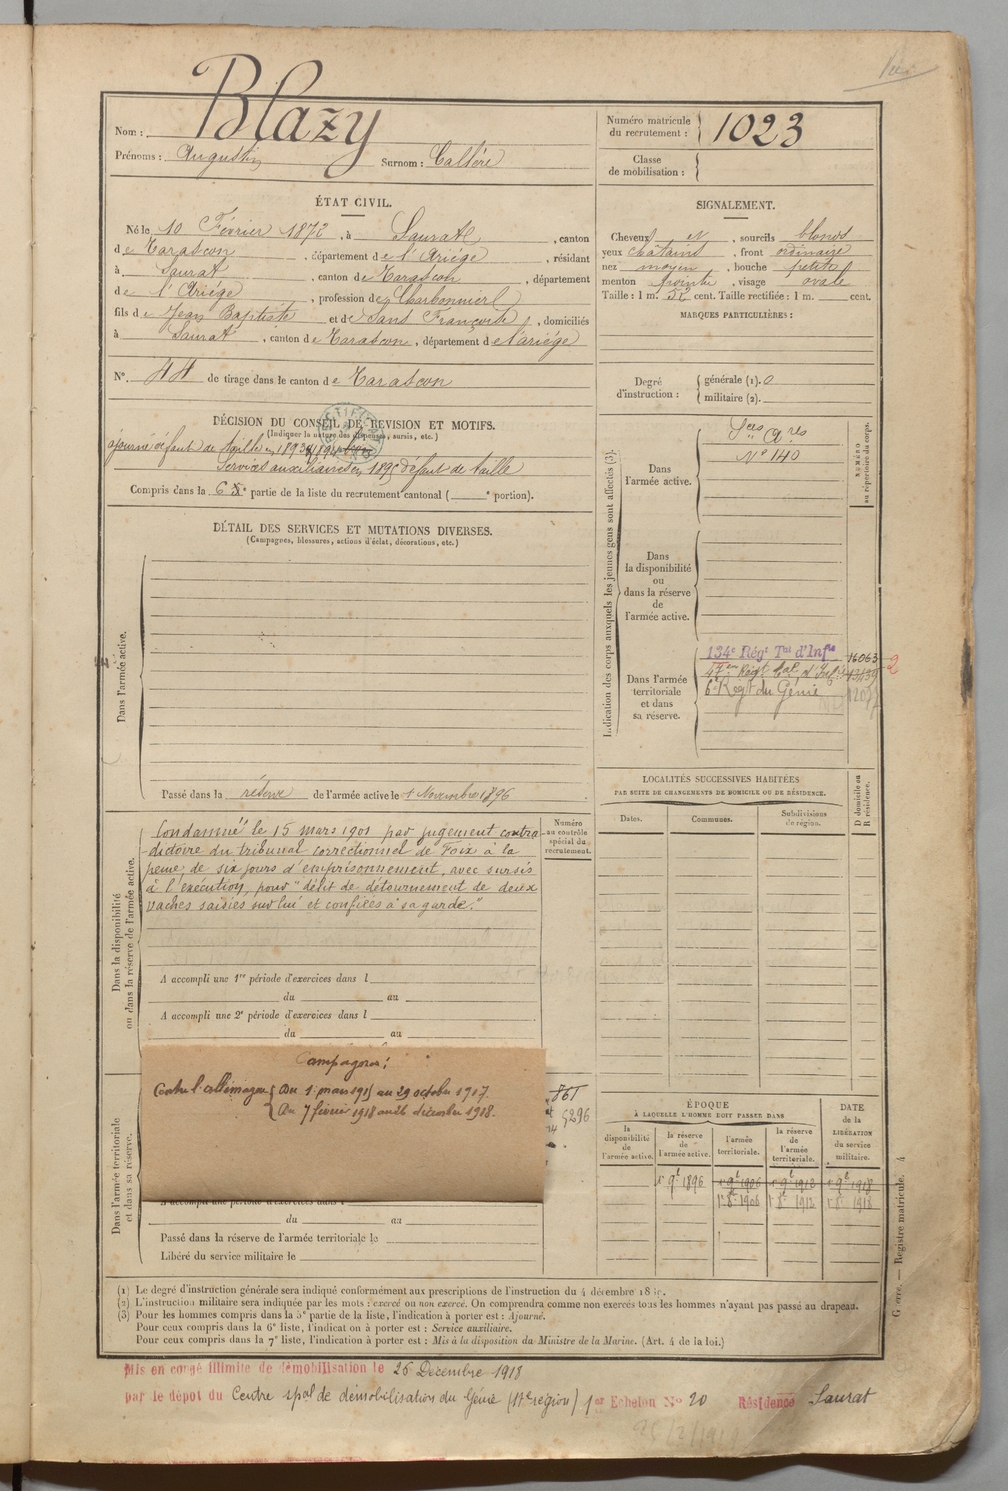 Nom : Blazy
Prénoms : Augustin Surnom :
Numéro matricule
du recrutement : 1023
Classe
de mobilisation :
ÉTAT CIVIL.
Né le 10 Février 1872, à Saurat, canton
de Tarascon, département de l'Ariége, résidant
à Saurat, canton de Tarascon, département
de l'Ariége, profession de Charbonnier
fils de Jean Baptiste et de Sans Françoise, domiciliés
à Saurat, canton de Tarascon, département de l'ariége
N° 44 de tirage dans le canton de Tarascon
SIGNALEMENT.
Cheveux et, sourcils blonds
yeux châtains, front ordinaire
nez moyen, bouche petite
menton pointu, visage ovale
Taille : 1 m. 52 cent. Taille rectifiée : 1 m. cent.
MARQUES PARTICULIÈRES :
Degré
d'instruction :
générale (1). 0
militaire (2).
DÉCISION DU CONSEIL DE REVISION ET MOTIFS.
(Indiquer la nature des dispenses, sursis, etc.)
ajourné défaut de taille en 1893 1894
Services auxiliaires en 1895 défaut de taille
Compris dans la 6e partie de la liste du recrutement cantonal ( e portion).
DÉTAIL DES SERVICES ET MUTATIONS DIVERSES.
(Campagnes, blessures, actions d'éclat, décorations, etc.)
Dans l'armée active.
Passé dans la réserve de l'armée active le 1 Novembre 1896
Indication des corps auxquels les jeunes gens sont affectés (3).
NUMÉRO
au répertoire du corps.
Dans
l'armée active.
Sces Ares
N° 140
Dans
la disponibilité
ou
dans la réserve
de
l'armée active.
Dans l'armée
territoriale
et dans
sa réserve.
134e Régt Tal d'Infie 16063
6e Regt du Génie
Dans la disponibilité
ou dans la réserve de l'armée active.
Condamné le 15 mars 1901 par jugement contra-
-dictoire du tribunal correctionnel de Foix à la
peine de six jours d'emprisonnement, avec sursis
à l'exécution, pour "délit de détournement de deux
vaches saisies sur lui et confiées à sa garde."
Numéro
au contrôle
spécial du
recrutement.
A accompli une 1re période d'exercices dans l
du au
A accompli une 2e période d'exercices dans l
du au
LOCALITÉS SUCCESSIVES HABITÉES
PAR SUITE DE CHANGEMENTS DE DOMICILE OU DE RÉSIDENCE.
D domicile ou
R résidence.
Dates. Communes. Subdivisions
de région.
Dans l'armée territoriale
et dans sa réserve.
Campagnes :
Contre l'allemagne Du 1 mars 1915 au 29 octobre 1917.
Du 7 février 1918 au 26 décembre 1918.
861
5296
A accompli une période d'exercices dans l
du au
Passé dans la réserve de l'armée territoriale le
Libéré du service militaire le
ÉPOQUE
À LAQUELLE L'HOMME DOIT PASSER DANS
DATE
de la
LIBÉRATION
du service
militaire.
la
disponibilité
de
l'armée active.
la réserve
de
l'armée active.
l'armée
territoriale.
la réserve
de
l'armée
territoriale.
1r 9e 1896 1r 9e 1906 1r 9e 1912 1r 9e 1918
1r 8e 1906 1r 8e 1912 1r 8e 1918
(1) Le degré d'instruction générale sera indiqué conformément aux prescriptions de l'instruction du 4 décembre
(2) L'instruction militaire sera indiquée par les mots : exercé ou non exercé. On comprendra comme non exercés tous les hommes n'ayant pas passé au drapeau.
(3) Pour les hommes compris dans la 5e partie de la liste, l'indication à porter est : Ajourné.
Pour ceux compris dans la 6e liste, l'indication à porter est : Service auxiliaire.
Pour ceux compris dans la 7e liste, l'indication à porter est : Mis à la disposition du Ministre de la Marine. (Art. 4 de la loi.)
Registre matricule. 4
Mis en congé illimité de démobilisation le 26 Décembre 1918
par le dépôt du Centre spal de démobilisation du Génie (17e région) 1er Echelon N° 20 Résidence Saurat